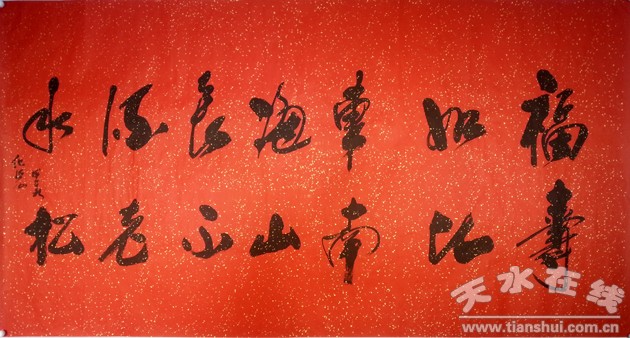 福如東海長流水
壽比南山不老松
天水在线
www.tianshui.com.cn